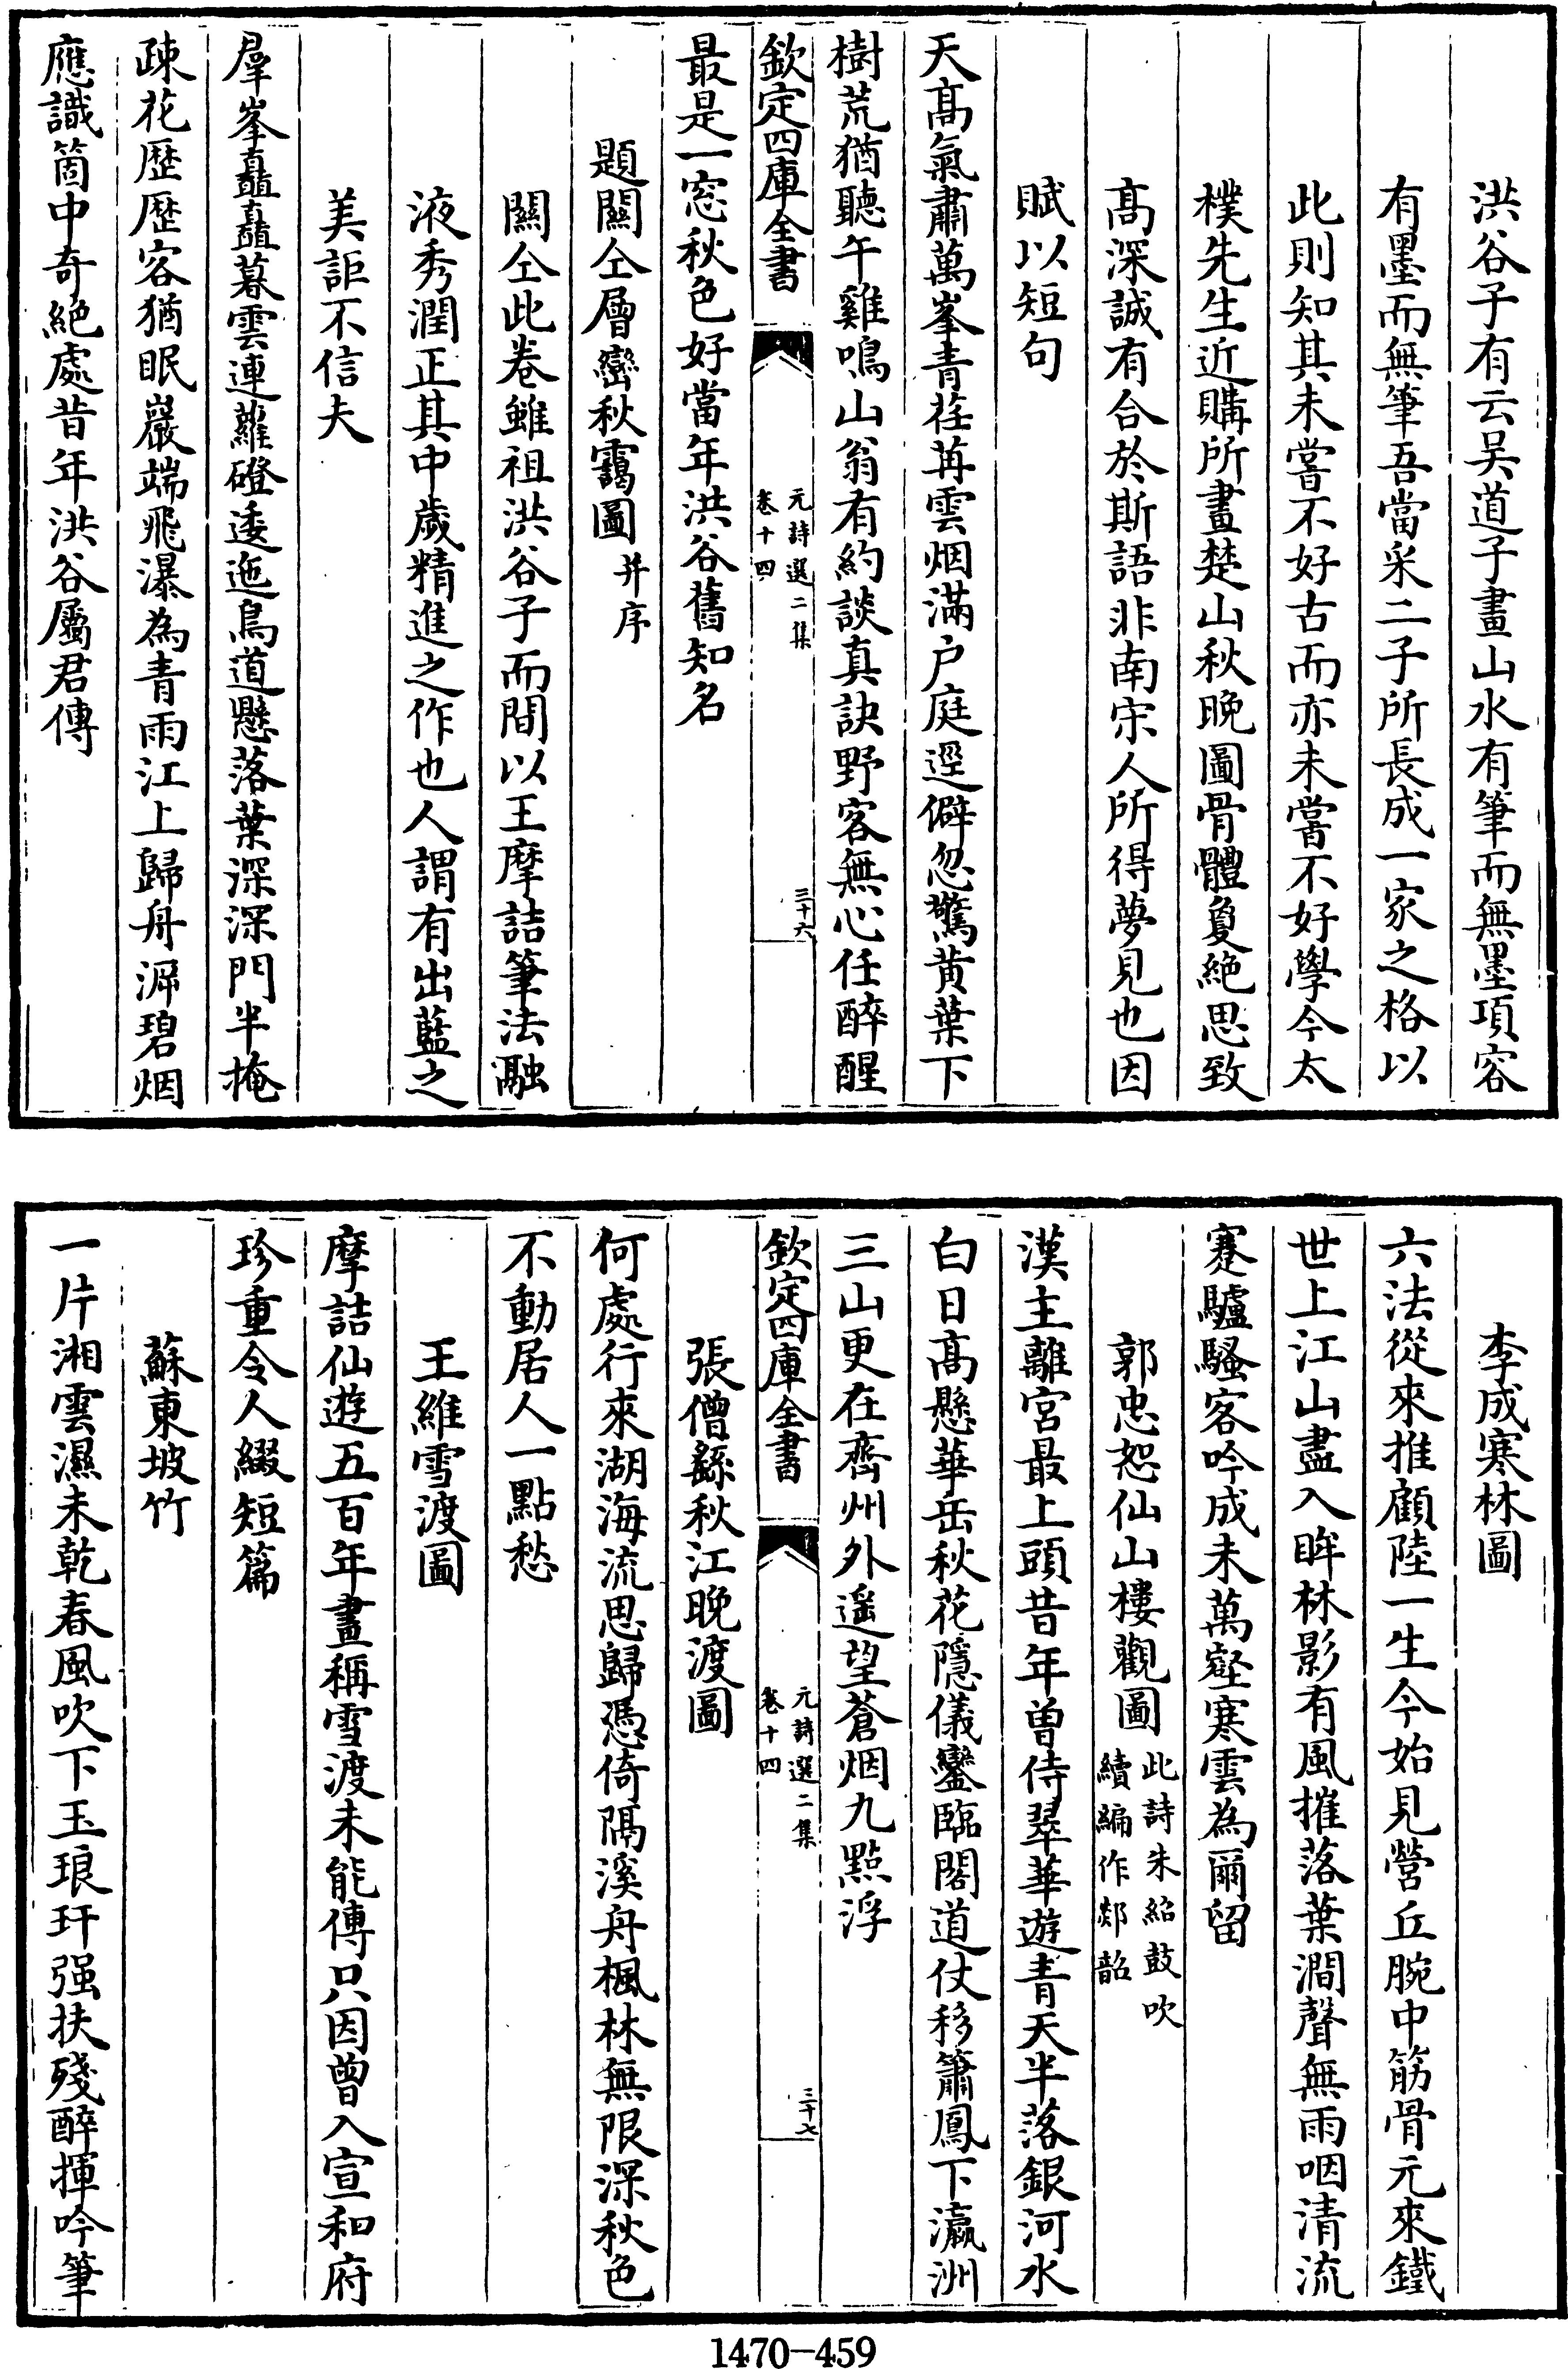 洪谷子有云吴道子畫山水有筆而無墨項容
有墨而無筆吾當采二子所長成一家之格以
此則知其未嘗不好古而亦未嘗不好學今太
樸先生近購所畫楚山秋晚圖骨體敻絶思致
高深誠有合於斯語非南宋人所得夢見也因
賦以短句
天高氣肅萬峯青荏苒雲烟滿户庭逕僻忽驚黄葉下
樹荒猶聽午雞鳴山翁有約談真訣野客無心任醉醒
欽定四庫全書
元詩選二集
卷十四
三十六
最是一窓秋色好當年洪谷舊知名
題關仝層巒秋靄圖并序
關仝此卷雖祖洪谷子而間以王摩詰筆法融
液秀潤正其中歲精進之作也人謂有出藍之
美詎不信夫
羣峯矗矗暮雲連蘿磴逶迤鳥道懸落葉深深門半掩
疎花歷歷客猶眠巖端飛瀑為青雨江上歸舟泝碧烟
應識箇中奇絶處昔年洪谷屬君傳
李成寒林圖
六法從來推顧陸一生今始見營丘腕中筋骨元來鐵
世上江山盡入眸林影有風摧落葉澗聲無雨咽清流
蹇驢騷客吟成未萬壑寒雲為爾留
郭忠恕仙山樓觀圖此詩朱紹鼓吹
續編作郯韶
漢主離宮最上頭昔年曽侍翠華遊青天半落銀河水
白日高懸華岳秋花隱儀鑾臨閣道仗移簫鳳下瀛洲
三山更在齊州外遥望蒼烟九點浮
欽定四庫全書
元詩選二集
卷十四
三十七
張僧繇秋江晚渡圖
何處行來湖海流思歸憑倚隔溪舟楓林無限深秋色
不動居人一點愁
王維雪渡圖
摩詰仙遊五百年畫稱雪渡未能傳只因曽入宣和府
珍重令人綴短篇
蘇東坡竹
一片湘雲濕未乾春風吹下玉琅玕强扶殘醉揮吟筆
1470-459